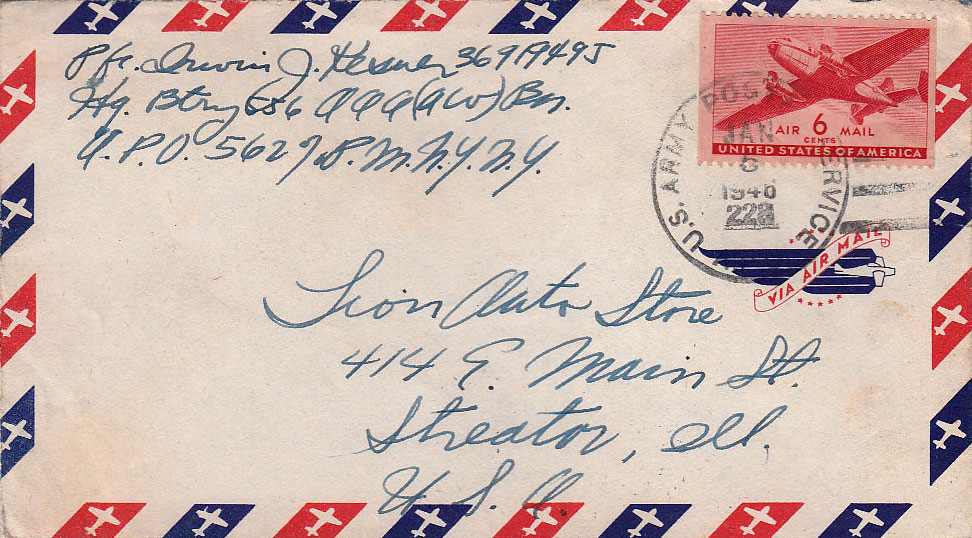 Pfc. Irwin J. 36919495
Hq. Btry 656 AAA (AW) Bn.
A.P.O. 562 % P.M. N.Y. N.Y.
AIR 6 MAIL
CENTS
UNITED STATES OF AMERICA
U.S. ARMY POSTAL SERVICE
JAN
6
1946
222
VIA AIR MAIL
Lion Auto Store
414 E. Main St.
Streator, Ill.
U.S.A.